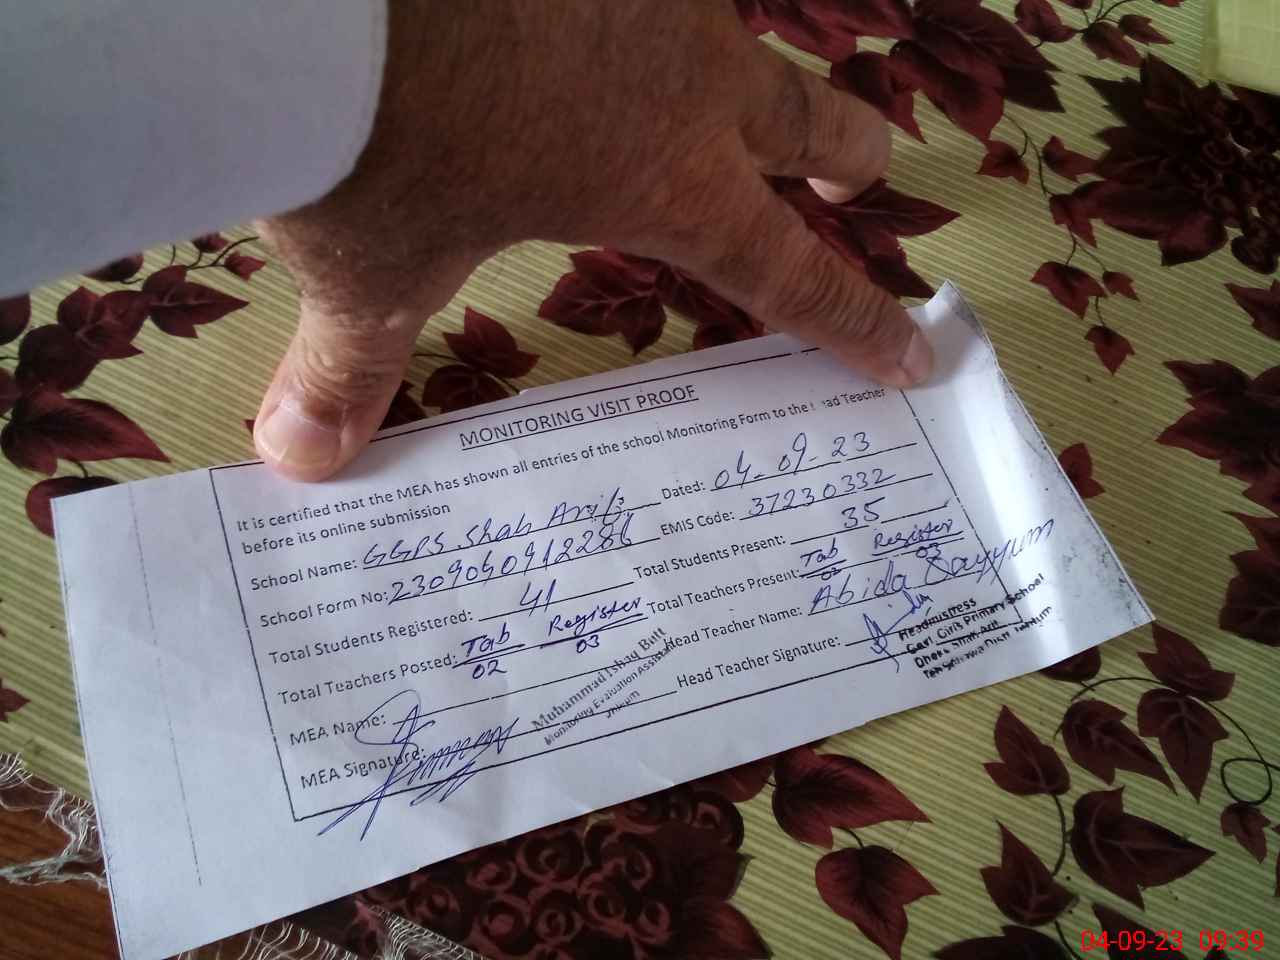 MONITORING VISIT PROOF
It is certified that the MEA has shown all entries of the school Monitoring Form to the Head Teacher
before its online submission
School Name: GGPS. Shah Arif Dated: 04-09-23
School Form No: EMIS Code: 37230332
Total Students Registered: 41 Total Students Present: 35
Total Teachers Posted: Tab 02 Register 03 Total Teachers Present: Tab 02 Register 03
MEA Name: Head Teacher Name: Abida Qayyum
MEA Signature: Head Teacher Signature:
Muhammad Ishaq Butt
Monitoring Evaluation Assistant
Jhelum
Headmistress
Govt. Girls Primary School
Dhoke Shah Arif
04-09-23 09:39